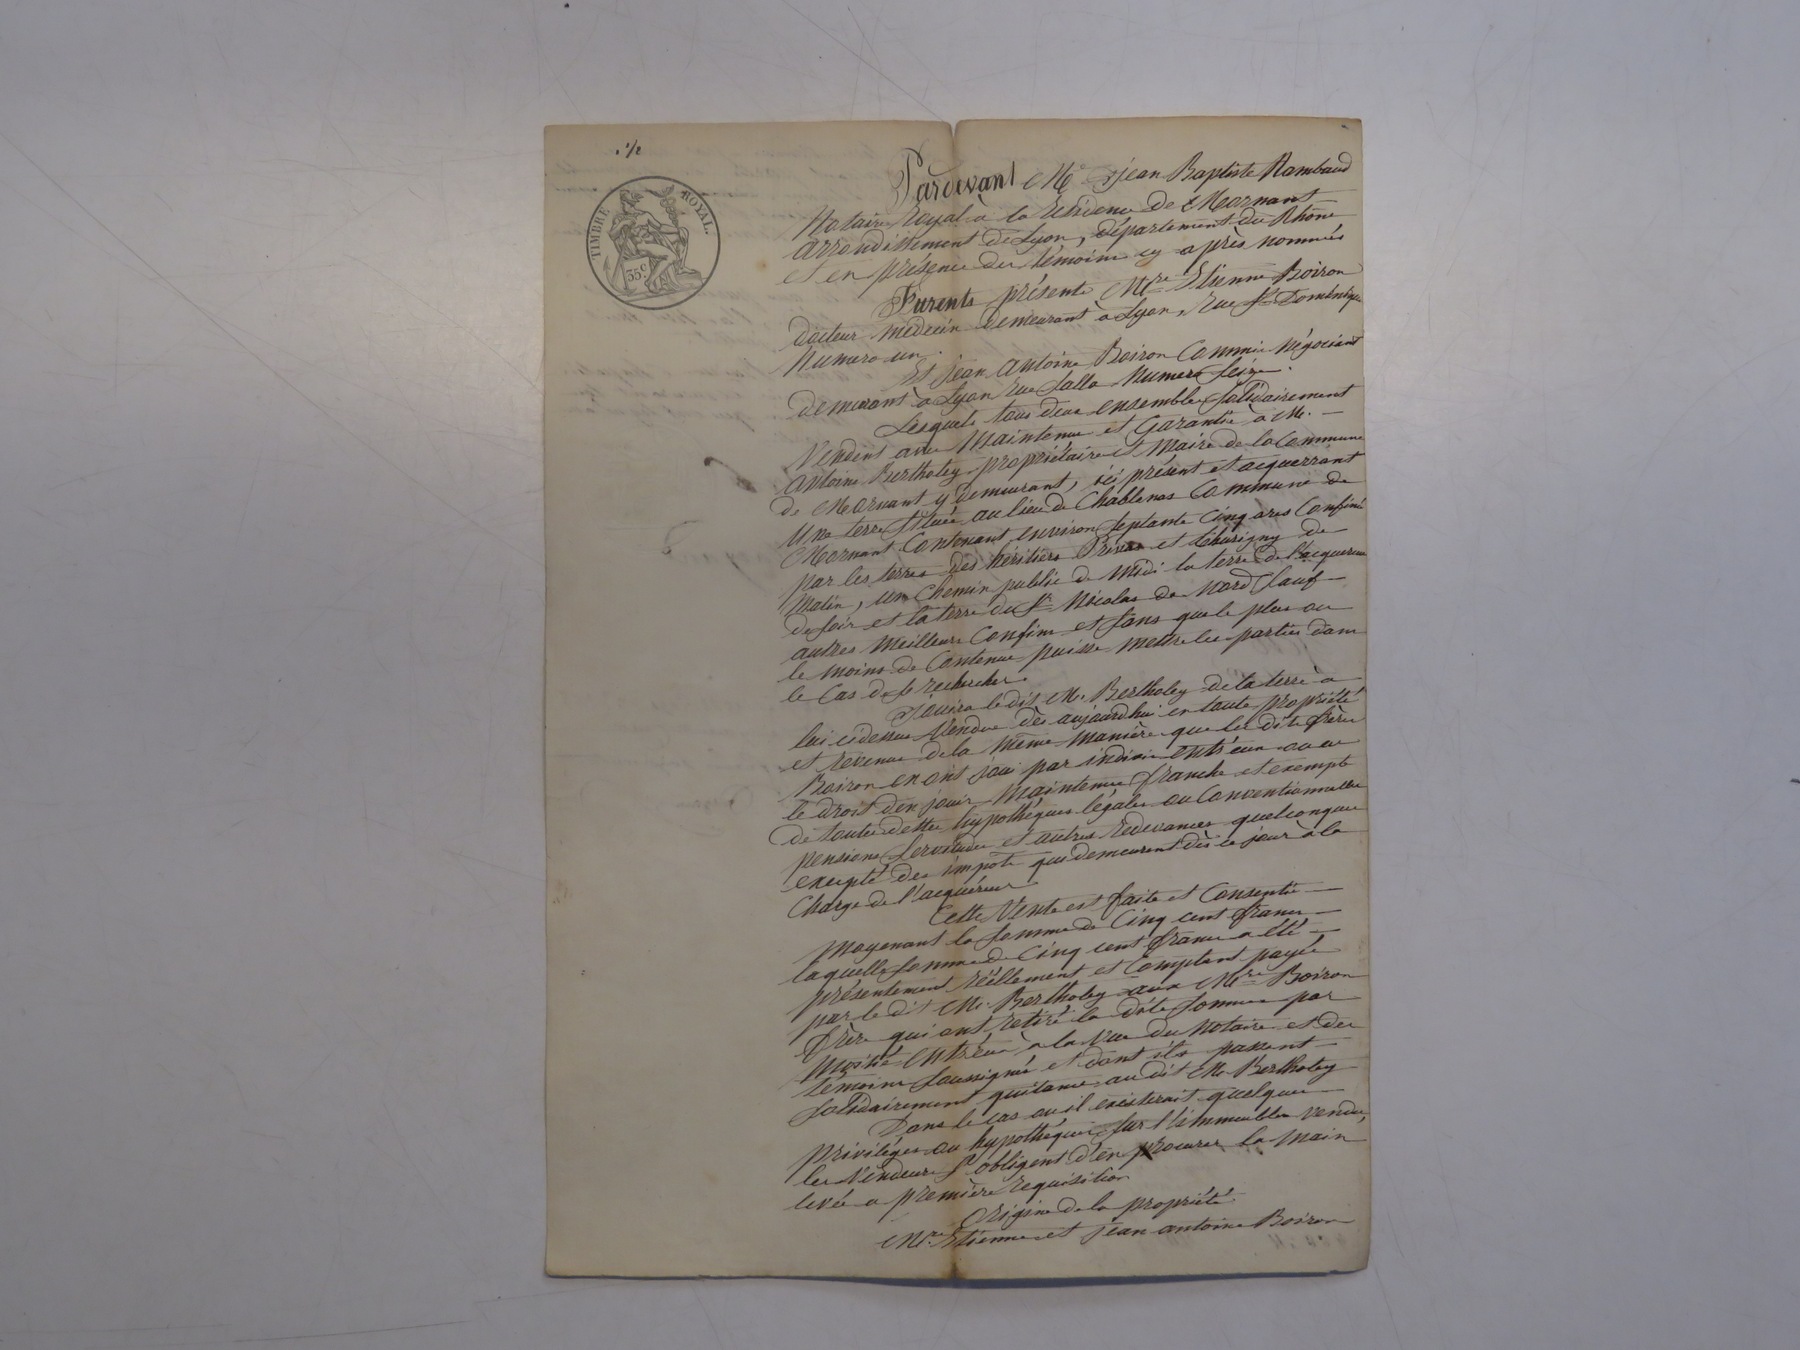 TIMBRE ROYAL.
35c
Pardevant Me Jean Baptiste Rambaud
Notaire Royal à la Résidence de Mornant
arrondissement de Lyon, département du Rhône
et en présence des témoins cy après nommés
Furent présents Mre Etienne Boiron
docteur médecin demeurant à Lyon, rue St Dominique
Numero un.
Et Jean Antoine Boiron Commis Négociant
demeurant à Lyon rue Salla Numero Seize.
Lesquels tous deux ensemble solidairement
Vendent avec Maintenue et Garantie à M.
Antoine Bertholey propriétaire et Maire de la Commune
de Mornant y demeurant, ici présent et acquerrant
Une terre située au lieu de Chablenas Commune de
Mornant Contenant environ Septante Cinq ares Confiné
par les terres des héritiers et de
Matin, un Chemin public de Midi la terre de l'acquereur
de soir et la terre du Sr Nicolas de Nord Sauf
autres Meilleurs Confins et Sans que le plus ou
le moins de Contenue puisse mettre les parties dans
le Cas de se rechercher.
Jouira le dit M. Bertholey de la terre a
lui cidessus Vendue dès aujourdhui en toute propriété
et revenus de la même manière que les dits frères
Boiron en ont joui par indivis entr'eux ou eu
le droit d'en jouir Maintenue franche et exempte
de toutes dettes hypothèques légales ou Conventionnelles
pensions Servitudes et autres redevances quelconques
excepté des impots qui demeurent dès ce jour à la
Charge de l'acquéreur
Cette Vente est faite et Consentie
moyenant la Somme de Cinq cent francs
laquelle Somme de Cinq cent francs a été
présentement réellement et Comptant payée
par le dit M. Bertholey aux Mrs Boiron
frères qui ont retiré la dite Somme par
Moitié Entr'eux à la Vue du Notaire et des
témoins Soussignés et dont ils passent
Solidairement quitance au dit M. Bertholey
Dans le cas ou il existerait quelques
privilèges ou hypothèques sur l'immeuble vendu,
les Vendeurs S'obligent d'en procurer la Main
levée a première requisition
Origine de la propriété.
Mrs Etienne et Jean antoine Boiron